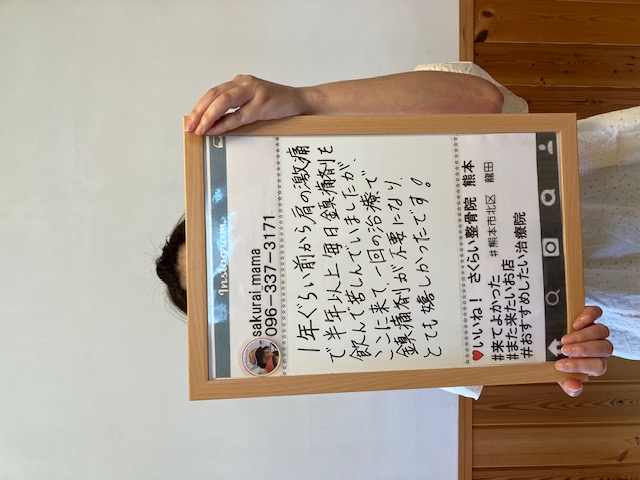 Instagram
sakurai mama
096-337-3171
1年ぐらい前から肩の激痛
で半年以上毎日鎮痛剤を
飲んで苦しんでいましたが、
ここに来て、一回の治療で
鎮痛剤が不要になり、
とても嬉しかったです。
いいね！ さくらい整骨院 熊本
#来てよかった #熊本市北区 龍田
#また来たいお店
#おすすめしたい治療院